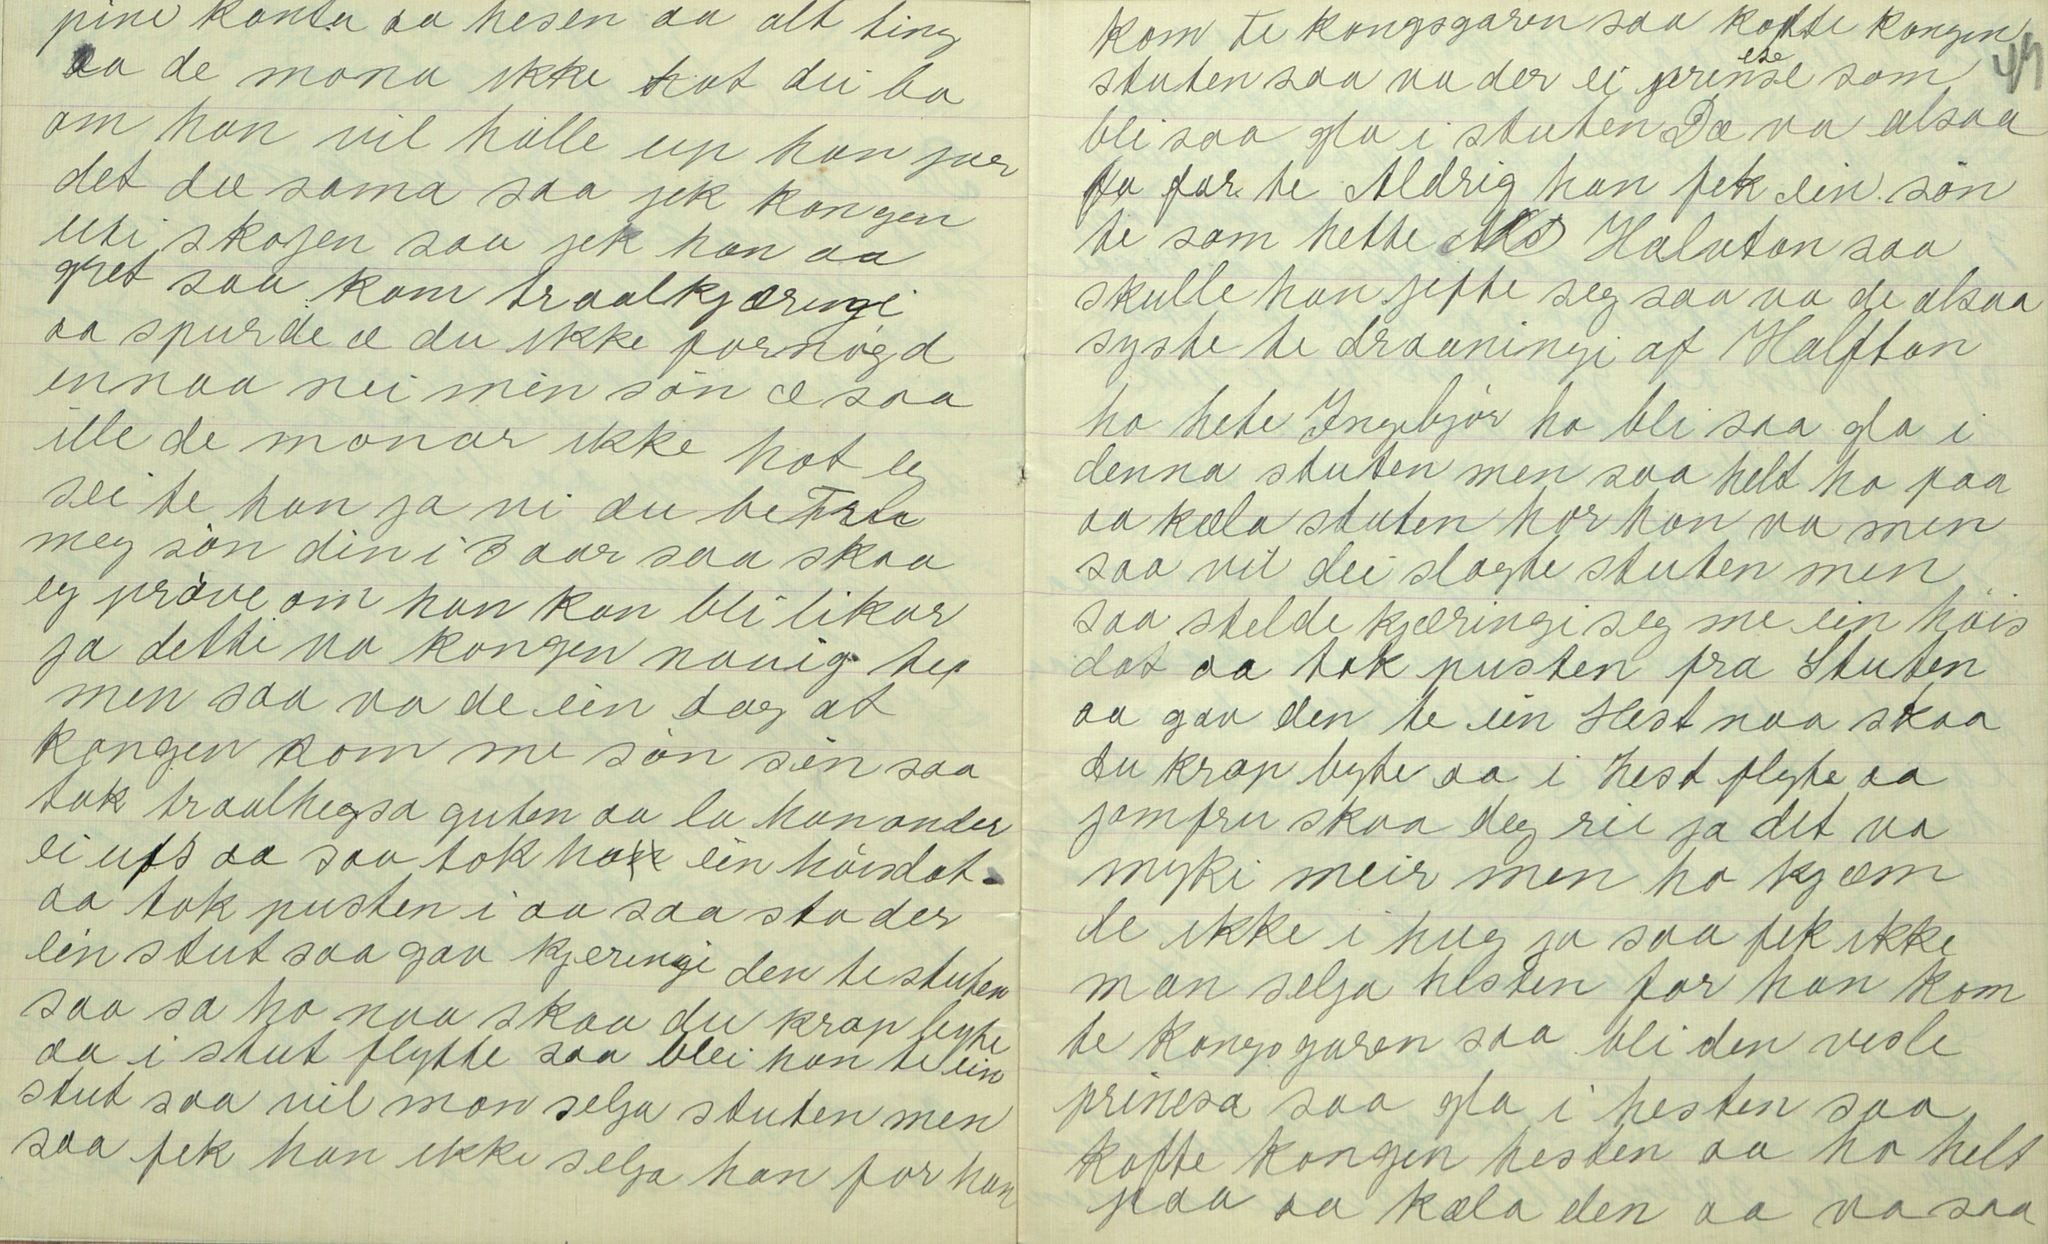 pine kanta aa hesen aa alt ting
aa de mona ikke hot du ba
om han vil halle up han jær
det dæ sama saa jek kongen
uti skogen saa jek han aa
gret saa kom traalkjæringi
aa spurde æ du ikke fornögd
ennaa nei min sön æ saa
ille de monar ikke hot eg
sei te han ja vi du betrla
meg sön din i 3 aar saa skaa
eg pröve om han kan bli likar
ja dette va kongen nauig tep
men saa va de ein dag at
kongen kom me sön sin saa
tok traalhegsa guten aa la han onder
ei ufs aa saa tok ho ein höisdot
aa tok pusten i aa saa sto der
ein stut saa gav kjeringi den te stuten
saa sa ho naa skaa du krap byte
aa i stut flytte saa blei han te ein
stut saa vil mon selja stuten men
saa fek han ikke selja han for han
kom te kongsgaren saa kofte kongen 49
stuten saa va der ei prinsese som
bli saa gla i stuten Dæ va alsaa
fa far te Aldrig han fek ein sön
te som hette Halvtan saa
skulle han jefte seg saa va de alsaa
syste te draaningi af Halftan
ho hete Ingebjör ho bli saa gla i
denna stuten men saa helt ho paa
aa kæla stuten hor han va men
saa vil dei slagte stuten men
saa stelde kjæringi seg me ein höis
dot aa tok pusten fra Stuten
aa gav den te ein Hest naa skaa
du krap byte aa i hest flyte aa
jomfru skaa deg rie ja det va
myki meir men ho kjæm
de ikke i hug ja saa fek ikke
man selja hesten for han kom
te kongsgaren saa bli den vesle
prinesa saa gla i hesten saa
kofte kongen hesten aa ho helt
paa aa kæla den aa va saa